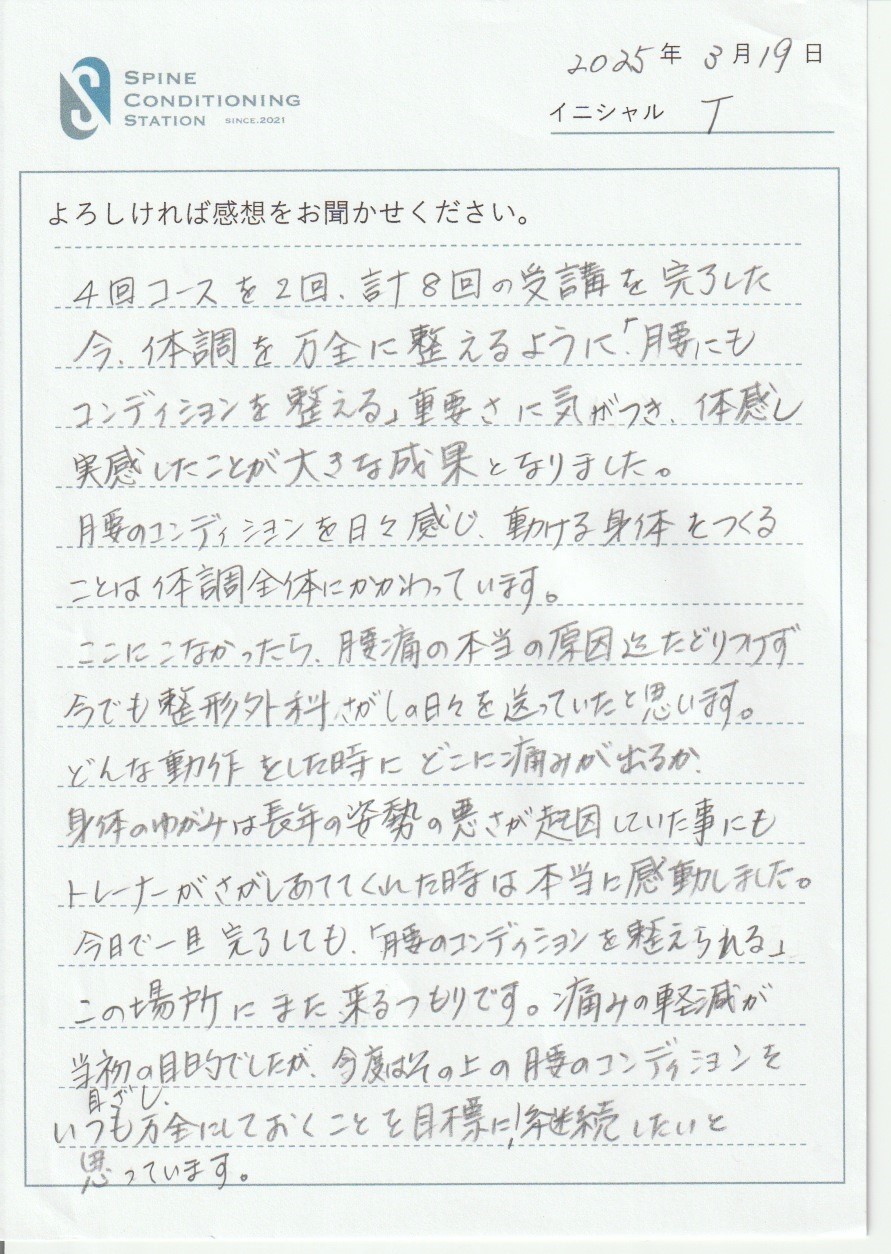 SPINE
CONDITIONING
STATION SINCE.2021
2025年 3月19日
イニシャル T
よろしければ感想をお聞かせください。
4回コースを2回、計8回の受講を完了した
今、体調を万全に整えるように、「腰にも
コンディションを整える」重要さに気がつき、体感し
実感したことが大きな成果となりました。
腰のコンディションを日々感じ、動ける身体をつくる
ことは体調全体にかかわっています。
ここにこなかったら、腰痛の本当の原因迄たどりつけず
今でも整形外科さがしの日々を送っていたと思います。
どんな動作をした時にどこに痛みが出るか、
身体のゆがみは長年の姿勢の悪さが起因していた事にも
トレーナーがさがしあててくれた時は本当に感動しました。
今日で一旦完了しても、「腰のコンディションを整えられる」
この場所にまた来るつもりです。痛みの軽減が
当初の目的でしたが、今度はその上の腰のコンディションを
目ざし、
いつも万全にしておくことを目標に!継続したいと
思っています。